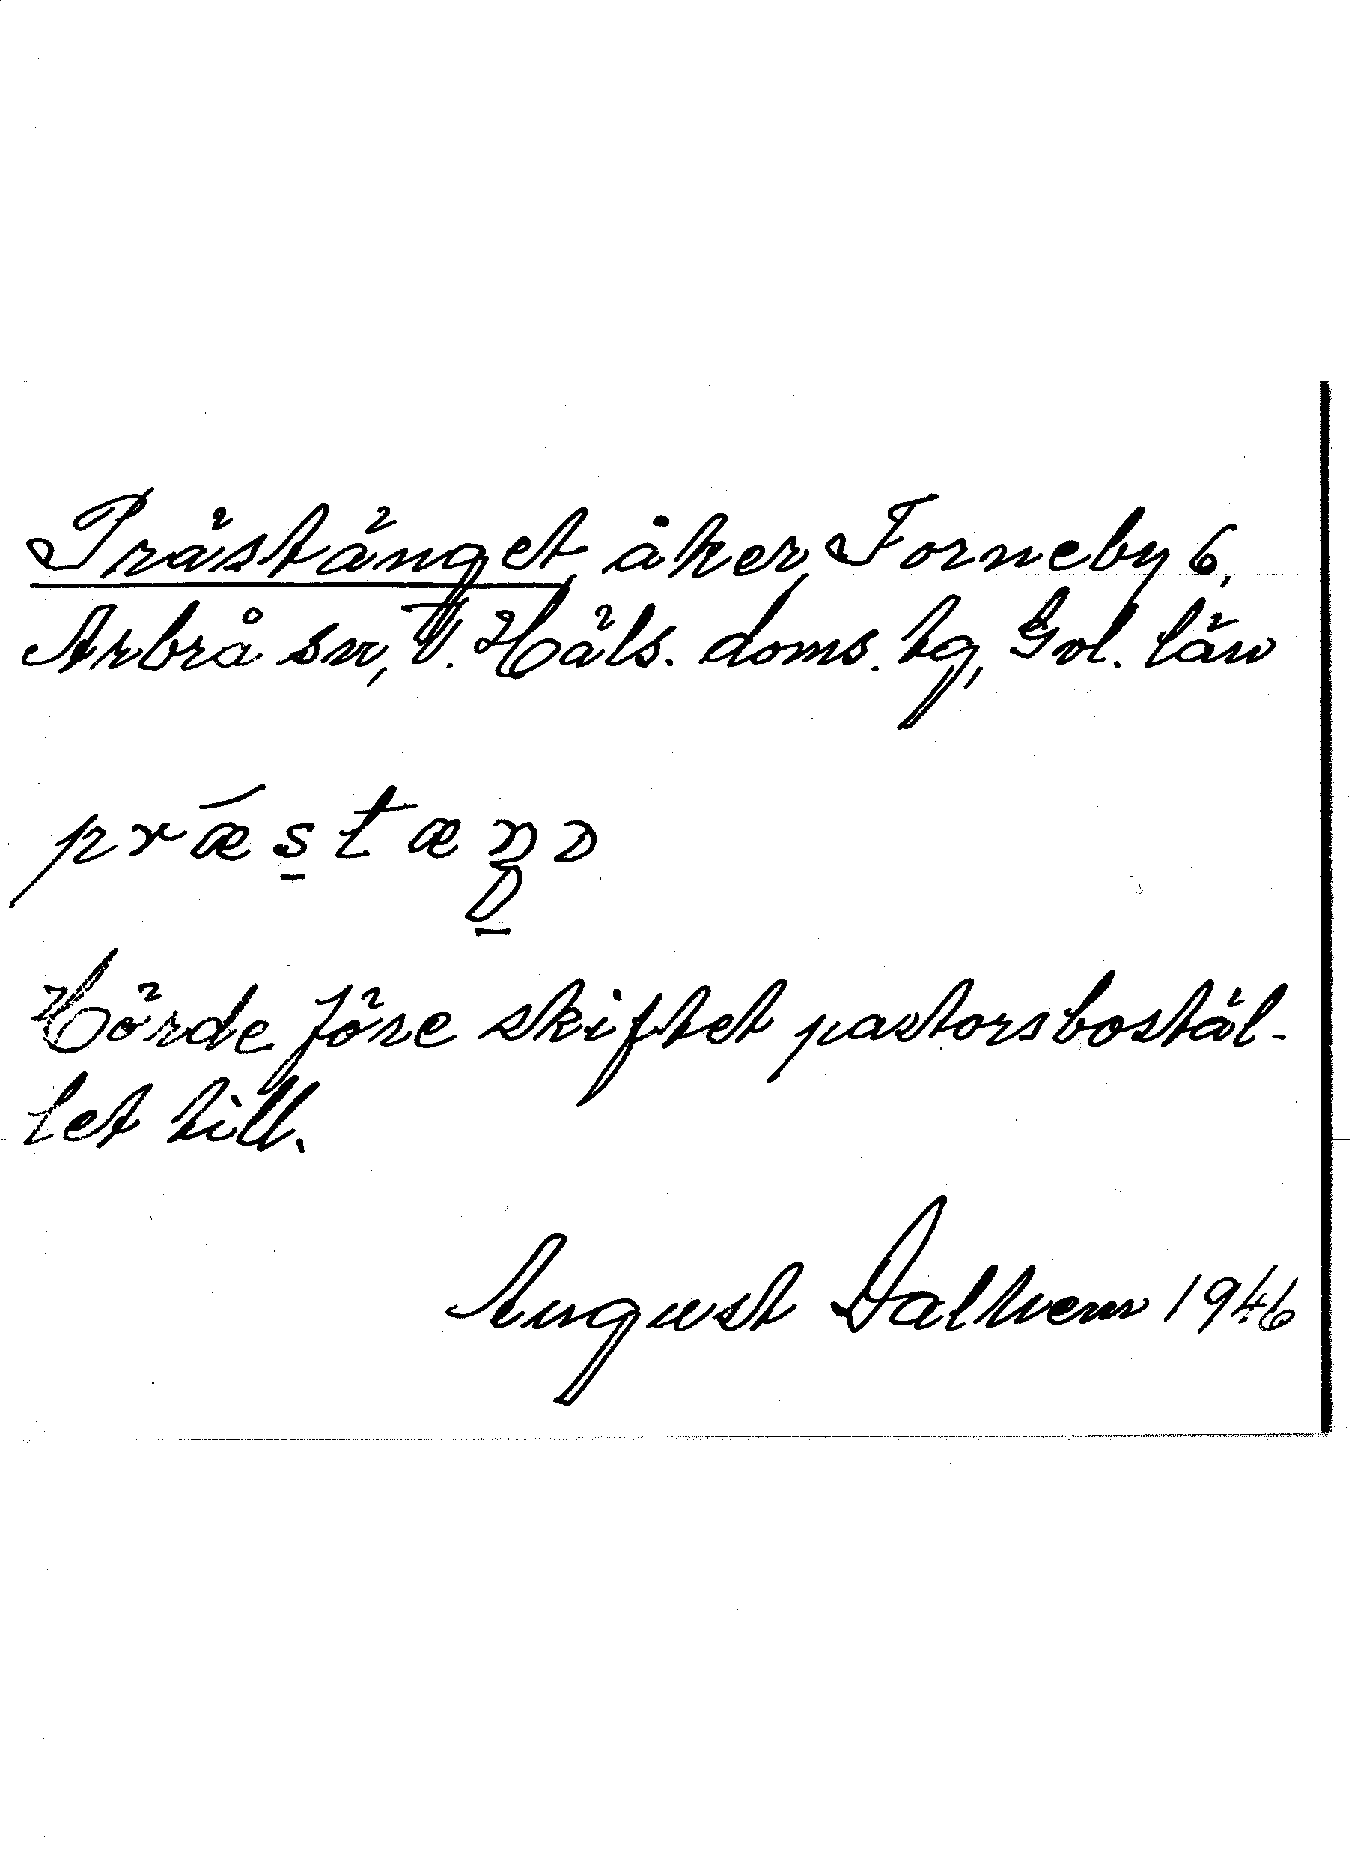 Prästänget, åker, Forneby 6,
Arbrå sn, V. Häls. doms. tg, Gvl. län
prǽs̲tæŋ̲ɒ
Hörde före skiftet pastorsbostäl-
let till.
August Dalhem 1946